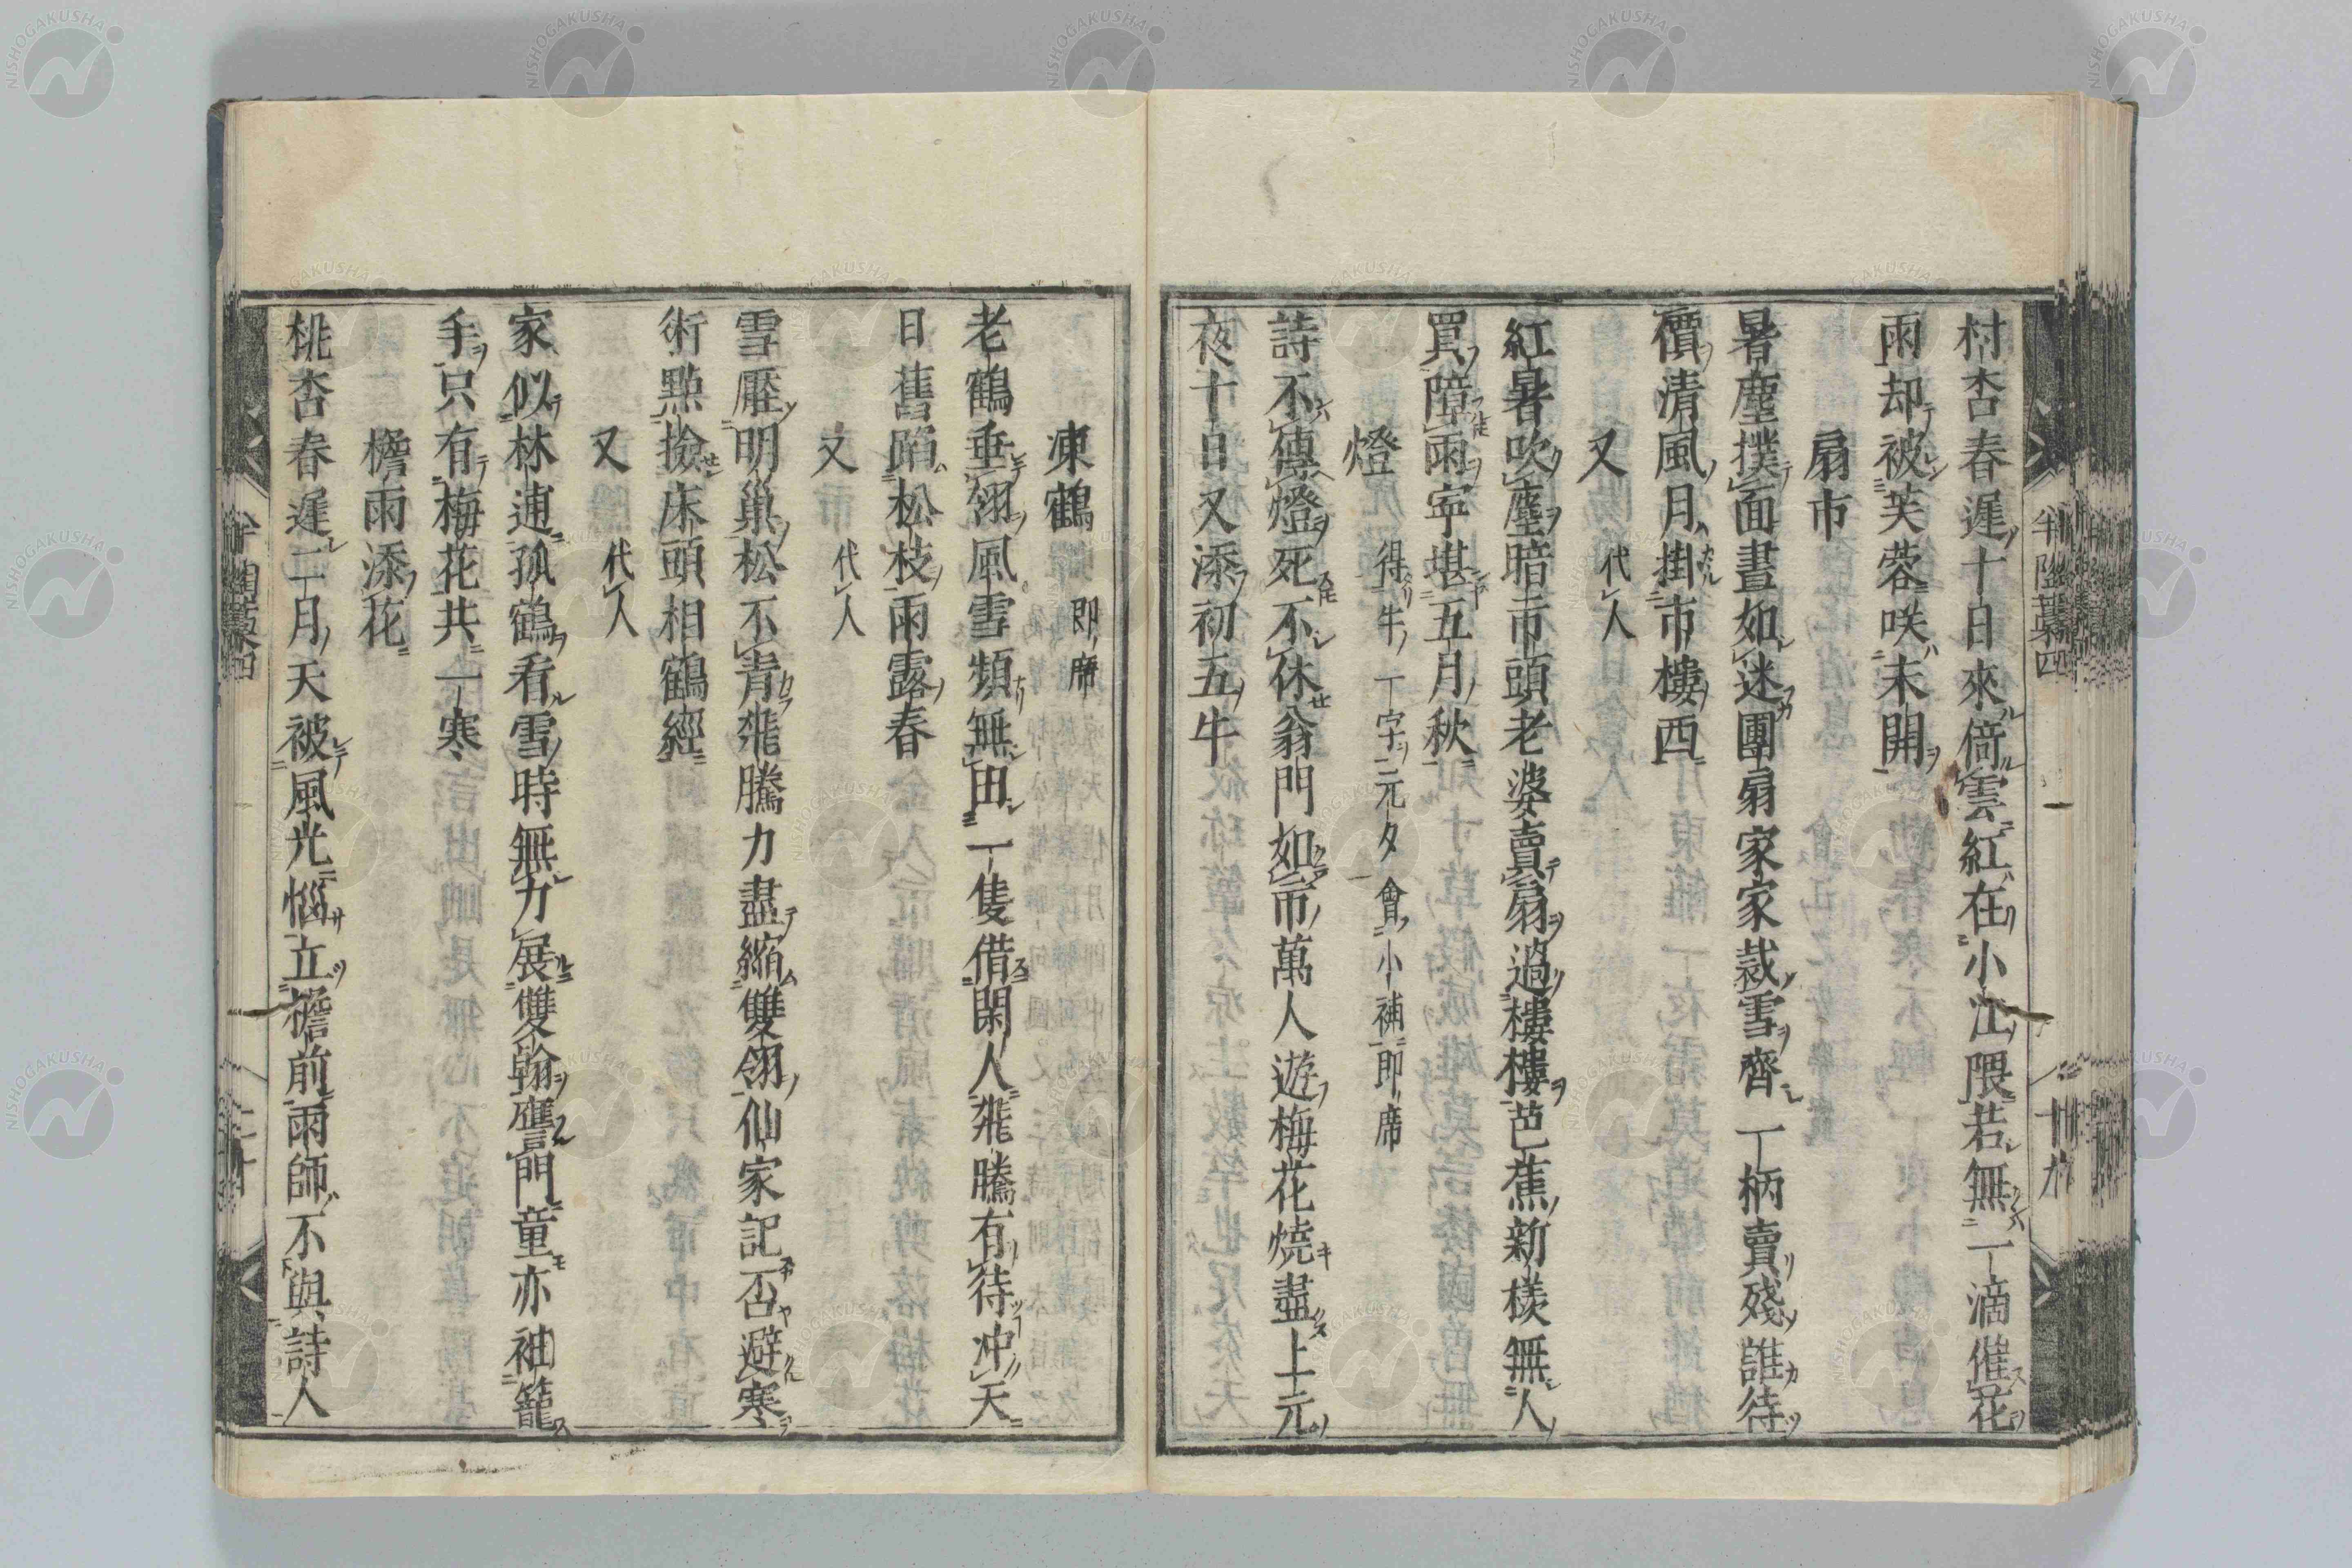 村杏春遲十日來倚雲紅在小江隈若無一滴催花
雨却被芙蓉咲未開
扇市
暑塵撲面晝如迷團扇家家裁雪齊一柄賣殘誰待
價清風月掛市樓西
又 代人
紅暑吹塵暗市頭老婆賣扇過樓樓芭蕉新樣無人
買障雨寧堪五月秋
燈 得牛一字元夕會小補即席
詩不傳燈死不休翁門如市萬人遊梅花燒盡上元
夜十日又添初五牛
凍鶴 即席
老鶴垂翎風雪頻無田一隻借閑人飛騰有待冲天
日舊蹈松枝雨露春
又 代人
雪壓明巢松不青飛騰力盡縮雙翎仙家記否避寒
術點撿床頭相鶴經
又 代人
家似林逋孤鶴看雪時無力展雙翰譍門童亦袖籠
手只有梅花共一寒
檐雨添花
桃杏春遲二月天被風光惱立檐前雨師不與詩人
半陶藁四
十九
二十